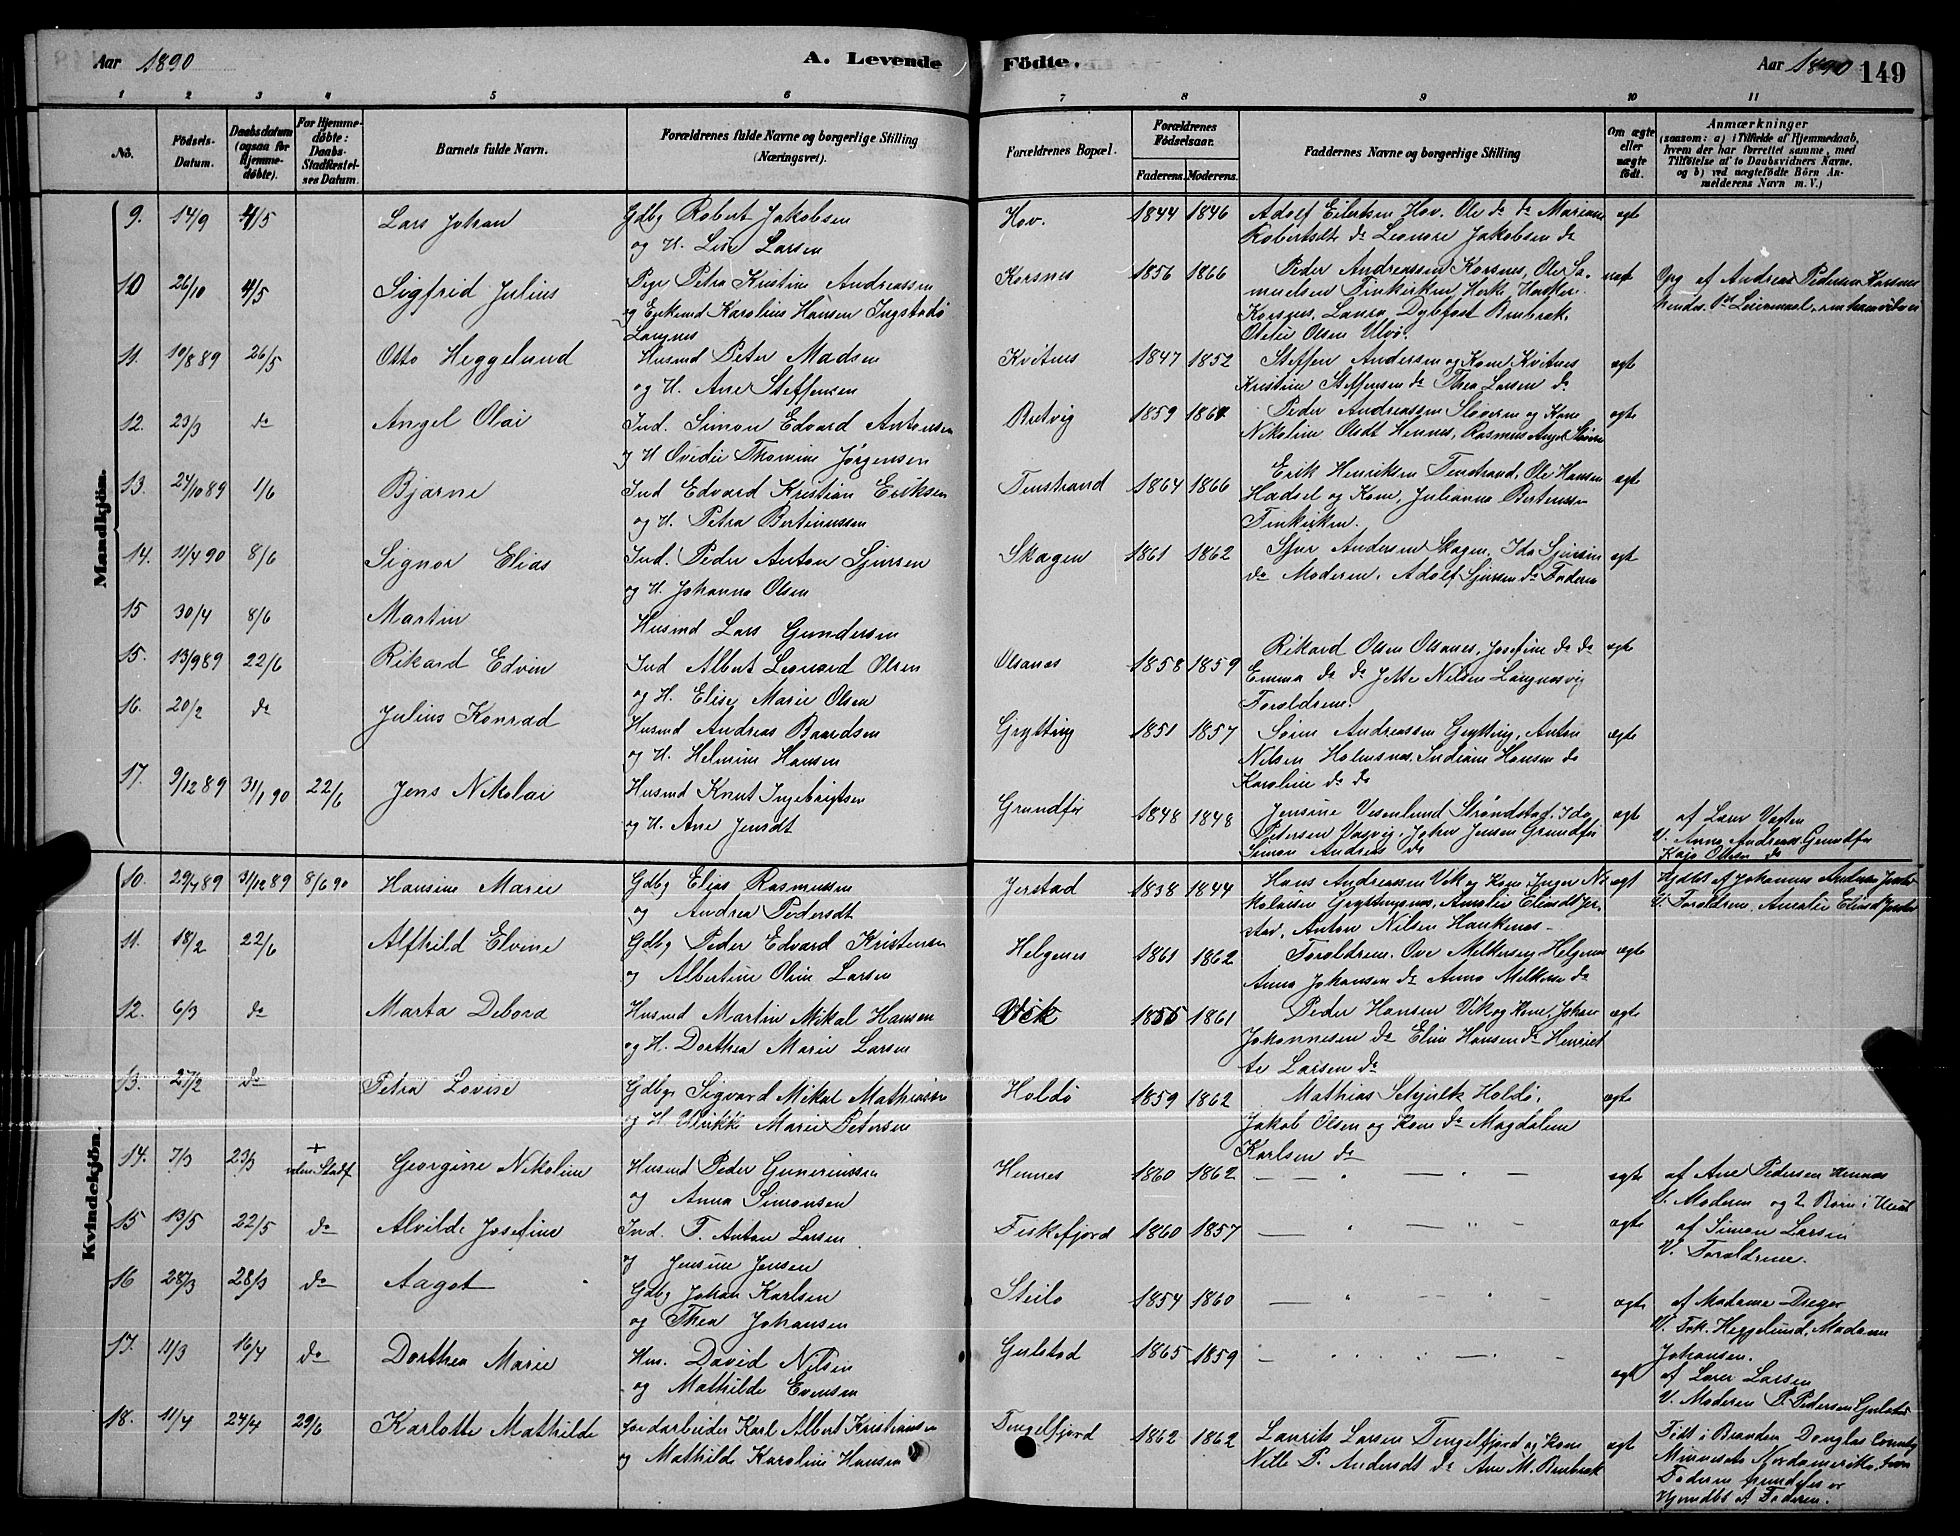 Aar 1890
A. Levende
Fødte.
Aar 1890
149
1 2 3 4 5 6 7 8 9 10 11
No.
Fødsels-Datum.
Daabsdatum (ogsaa for Hjemmedøbte).
For Hjemmedøbte: Daabs-Stadfæstelses Datum.
Barnets fulde Navn.
Forældrenes fulde Navne og borgerlige Stilling (Næringsvei).
Forældrenes Bopæl.
Forældrenes Fødselsaar.
Faderens. Moderens.
Faddernes Navne og borgerlige Stilling
Om ægte eller uægte født.
Anmærkninger
(saasom: a) i Tilfælde af Hjemmedaab, hvem der har forrettet samme, med Tilføielse af to Daabsvidners Navne, og b) ved uægtefødte Børn Anmelderens Navn m. V.)
Mandkjøn.
9. 14/9 4/5 Lars Johan Gdbr Robert Jakobsen Hov. 1844 1846 Adolf Eilertsen Hov. Ole do do Mariane ægte
og H. Lise Larsen Robertsdt do Leonore Jakobsen do
10 26/10 4/5 Sigfrid Julius Pige Petra Kristine Andreassen Korsnes 1856 1866 Peder Andreassen Korsnes, Ole Sa- uægt Opg af Andreas Pedersen Korsnes
og Enkemd Karolius Hansen Ingstadø muelsen Finkirken
Langnes Korsnes, Laura Dybfest Brubrak,
Otelie Olsen Ulvø.
11. 19/8 89 26/5 Otto Heggelund Husmd Peter Madsen Kvitnes 1847 1852 Steffen Andersen og Kone Kvitnes ægte
og H. Ane Steffensen Kristine Steffensen do Thea Larsen do
12. 23/3 do Angel Olai Ind. Simon Edvard Antonsen Butvig 1859 Peder Andreassen Sloveren og Kone ægte
og H Ovidie Thomine Jørgensen Nikoline Olsdt Hennes, Rasmus Angel
13. 24/10 89 1/6 Bjarne Ind Edvard Kristian Eriksen Tenstrand 1864 1866 Erik Henriksen Tenstrand, Ole Hansen ægte
og H. Petra Bertinussen Hadsel og Kone, Julianna Bertinussen
Finkirken.
14. 11/4 90 8/6 Signor Elias Ind. Peder Anton Sjursen Skagen 1861 1862 Sjur Andersen Skagen, Ida Sjursen ægte
og H. Johanna Olsen do Moderen. Adolf Sjursen do Faderen
15 30/4 8/6 Martin Husmd Lars Gundersen
15. 13/9 89 22/6 Rikard Edvin Ind Albert Leonard Olsen Olsanes 1858 1859 Rikard Olsen Olsanes, Josefine do do ægte
og H. Elise Marie Olsen Emma do do Jette Nilsen Langnesvig
Forældrene.
16. 20/2 do Julius Konrad Husmd Andreas Baardsen Grytting 1851 1857 Søren Andreassen Grytting, Anton ægte
og H. Helmine Hansen Nilsen Holmsnes, Indiane Hansen do
Karoline do do
17. 9/12 89 31/1 90 22/6 Jens Nikolai Husmd Knut Ingebrigtsen Grundfør 1848 1848 Jensine Vesenlund Strøndstad, Ida ægte af Laur Vagten
og H. Ane Jensdt Petersen Vasvig, Johan Jensen Grundfør V. Anna Andreas Grundfør
Simon Andreas do Kajo Ottesen do
Kvindekjøn.
10. 29/4 89 31/12 89 8/6 90 Hansine Marie Gdbr Elias Rasmussen Jerstad 1838 1844 Hans Andreassen Vik og Kone, Inger Ni- ægt Hjdbt af Johannes Andersen Jerstad
og Andrea Pedersdt kolaisen Gryttingnes, Amalie Eliasdt Jer- V. Forældrene, Amalie Eliasd Jerstad
stad, Anton Nilsen Haukenes.
11. 18/2 22/6 Alfhild Elvine Gdbr Peder Edvard Kristensen Helgenes 1861 1862 Forældrene. Ove Melkersen Helgenes ægte
og Albertine Oline Larsen Anna Johansen do Anna Melkersen do
12. 6/3 do Marta Debora Husmd Martin Mikal Hansen Vik 1855 1861 Peder Hansen Vik og Kone, Johan ægte
og H. Dorthea Marie Larsen Johannesen do Elise Hansen do Henriet
te Larsen do
13. 27/2 do Petra Lovise Gdbr Sigvard Mikal Mathiassen Holdø 1859 1862 Mathias Schjulk Holdø, ægte
og H Ulrikke Marie Petersen Jakob Olsen og Kone do Magdalene
Karlsen do
14. 7/3 23/3 + uden Stadf Georgine Nikoline Husmd Peder Gunerinssen Hennes 1860 1862 — — " — " — ægte af Ane Pedersen Hennes
og Anna Simonsen V. Moderen og 2 Børn i Huset
15 13/5 22/5 do Alvilde Josefine Ind. T. Anton Larsen Fiskefjord 1860 1857 — " — " — ægte af Simon Larsen
og Jensine Jensen V. Forældrene.
16 28/3 28/3 do Aagot Gdbr Johan Karlsen Steilo 1854 1860 — " — " — ægte af Madame Dreyer
og Thea Johansen V. Frk. Heggelund, Madame
Johansen.
17. 11/3 16/4 do Dorthea Marie Hus. David Nilsen Gulstad 1865 1859 ægt af Laver Larsen
og Mathilde Evensen V. Moderen P. Pedersen Gulstad
18. 11/4 24/4 29/6 Karlotte Mathilde Jordarbeider Karl Albert Kristiansen Tengelfjord 1862 1862 Laurits Larsen Tengelfjord og Kone ægt Født i Brandon Douglas County
og Mathilde Karoline Hansen Nille P. Andersdt do Ane M. Brubrak Minnesota Nordamerika, hvor
Faderen fremdeles er
Hjemdbt af Faderen.